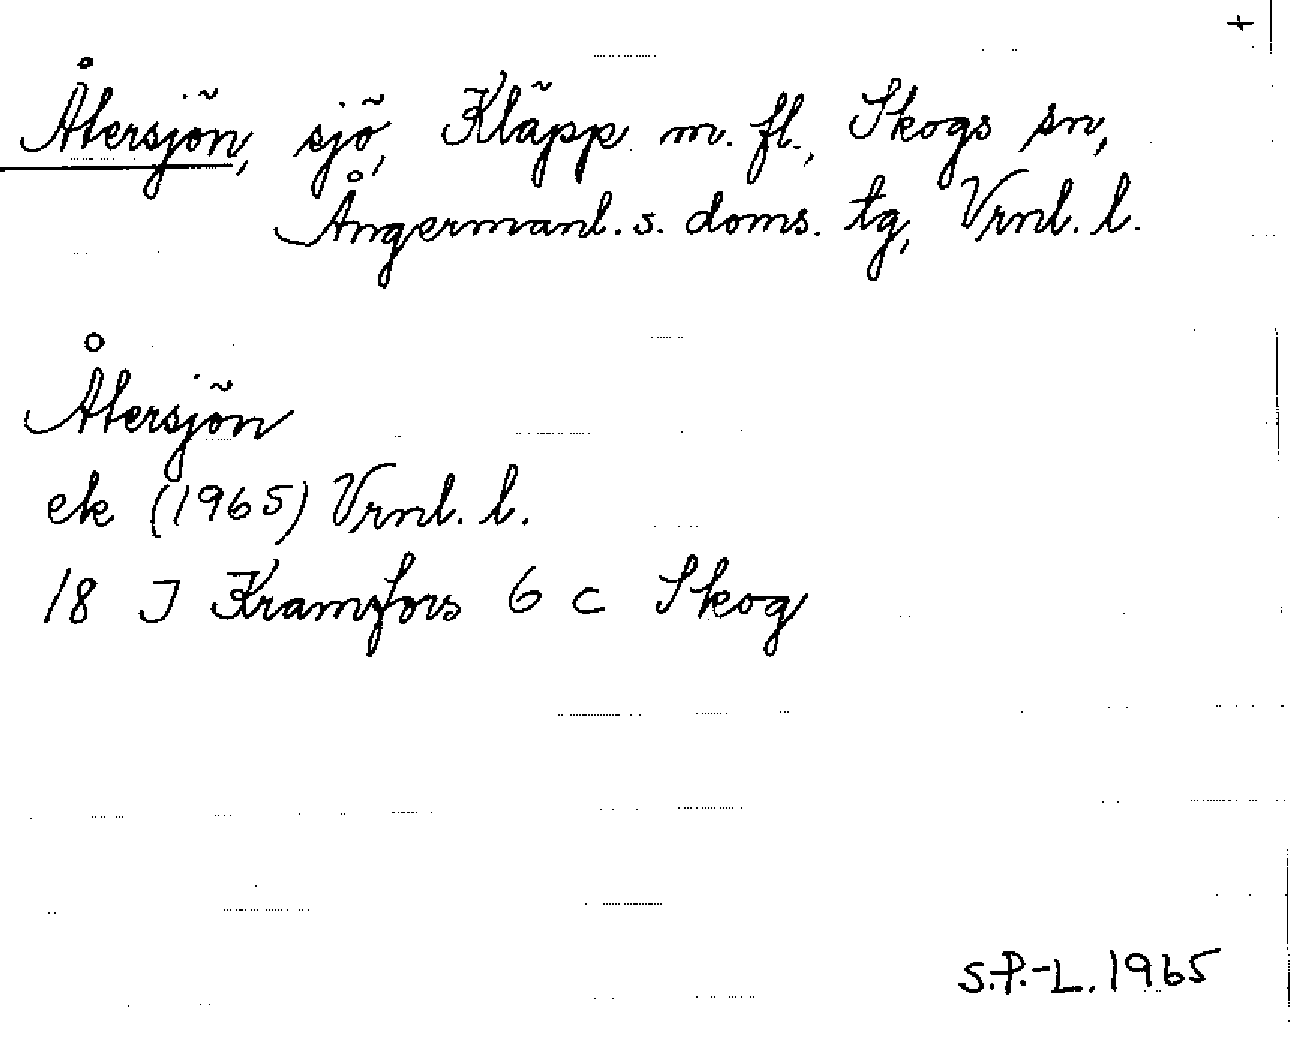 +
Återsjön, sjö, Kläpp m. fl., Skogs sn,
Ångermanl. s. doms. tg, Vrnl. l.
Återsjön
ek (1965) Vrnl. l.
18 J Kramfors 6 c Skog
S.P.-L. 1965